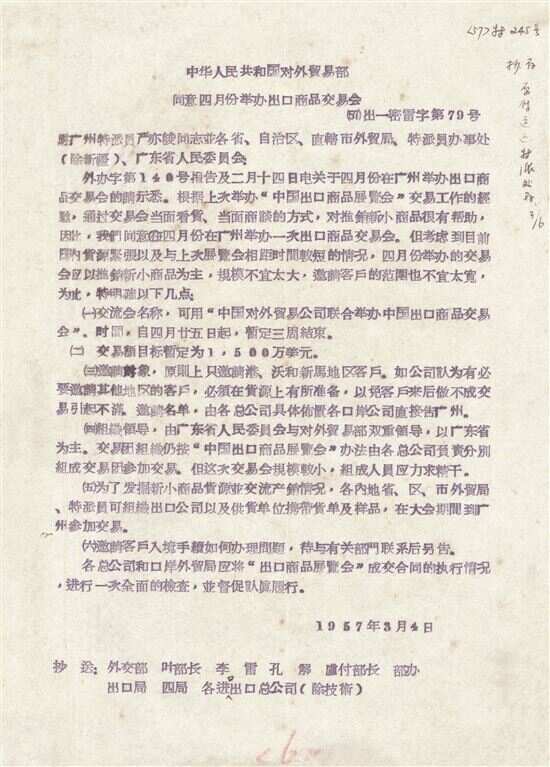 <57>특245号
中华人民共和国对外贸易部
同意四月份举办出口商品交易会
(57)出一密雷字第79号
广州特派员严亦峻同志並各省、自治区、直辖市外贸局、特派员办事处
(除新疆)、广东省人民委员会:
外办字第140号报告及二月十四日电关于四月份在广州举办出口商
品交易会的請示悉。根据上次举办“中国出口商品展覽会”交易工作的經
驗,通过交易会当面看貨、当面商談的方式,对推銷新小商品很有帮助,
因此,我們同意在四月份在广州举办一次出口商品交易会。但考虑到目前
国内貨源緊張以及与上次展覽会相距时間較短的情况,四月份举办的交易
会应以推銷新小商品为主,規模不宜太大,邀請客戶的范圍也不宜太寬,
为此,特明确以下几点:
㈠交流会名称,可用“中国对外貿易公司联合举办中国出口商品交易
会”。时間,自四月廿五日起,暫定三周結束。
㈡ 交易額目标暫定为1,500万美元。
㈢邀請對象,原則上只邀請港、沃和新馬地区客戶。如公司認为有必
要邀請其他地区的客戶,必須在貨源上有所准备,以免客戶来后做不成交
易引起不滿。邀請名单,由各总公司具体佈置各口岸公司直接告广州。
㈣組織領导,由广东省人民委員会与对外貿易部双重領导,以广东省
为主。交易团組織仍按“中国出口商品展覽会”办法由各总公司負責分別
組成交易团参加交易。但这次交易会規模較小,組成人員应力求精干。
㈤为了发掘新小商品貨源並交流产銷情况,各內地省、区、市外貿局
、特派員可組織出口公司以及供貨单位携帶貨单及样品,在大会期間到广
州参加交易。
㈥邀請客戶入境手續如何办理問題,待与有关部門联系后另告。
各总公司和口岸外貿局应將“出口商品展覽会”成交合同的执行情况
,进行一次全面的檢查,並督促認眞履行。
1957年3月4日
抄送:外交部 叶部长 李 雷 孔 解 盧付部长 部办
出口局 四局 各进出口总公司(除技術)